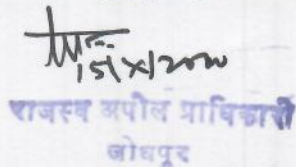 15/X/2020
राजस्व अपील प्राधिकारी
जोधपुर